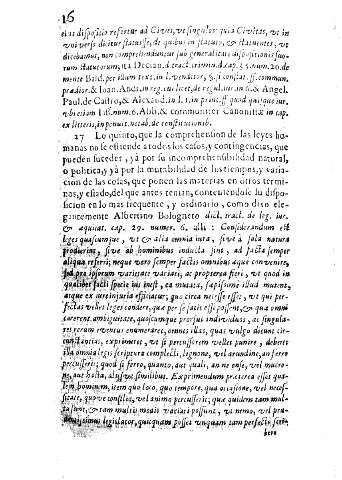 16
eius dispositio refertur ad Cives, ve singulos: quia Civitas, ve in
universo dicitur statuisse, de quibus in statuto, & statuentes, ve
dicebamus, non comprehenduntur sub generalitate dispositionis suo-
rum statutorum, ita Decian. d. tract. crimin. d. cap. 35. num. 20. de
mente Bald. per illum text. in l. venditor, §. si constat. ff. commun.
prædior. & Ioan. Andr. in reg. cui licet, de regul. iur. in 6. & Angel.
Paul. de Castro, & Alexand. in l. 1. in princ. ff. quod quisque iur.
ubi etiam Ias. num. 6. Abb. & communiter Canonistæ in cap.
ex litteris, in penult. notab. de constitutionib.
27 Lo quinto, que la comprehension de las leyes huma-
nas no se estiende a todos los casos, y contingencias, que
pueden suceder, yà por su incomprehensibilidad natural,
o politica, y yà por la mutabilidad de los tiempos, y varia-
cion de las cosas, que ponen las materias en otros termi-
nos, y estado, del que antes tenian, conteniendose su dispo-
sicion en lo mas frequente, y ordinario, como dixo ele-
gantemente Albertino Bologneto dict. tract. de leg. iur.
& æquitat. cap. 29. numer. 6. alli: Considerandum est
leges quascumque, vt & alia omnia iura, sive à sola natura
producta, sive ab hominibus inducta sint, ad facta semper
aliqua referri; neque vero semper factis omnibus æque convenire,
sed pro ipsorum varietate variari, ac propterea fieri, vt quod in
qualibet facti specie ius inest, ea mutata, sapissime illud mutent,
atque ex iure iniuria efficiatur; quo circa necesse esset, vt qui per-
fectas vellet leges condere, qua per se satis essent, & qua omni
carerent ambiguitate, quascumque prorsus individuos, ac singula-
res rerum eventus enumeraret, omnes illas, quas vulgo dicunt cir-
cunstantias, exprimeret, vt si percussorem vellet punire, deberet
illa omnia legis scriptura complecti, lignone, vel arundine, an ferro
percusserit; quod si ferro, quanto, aut quali, an ne ense, vel mucro-
ne, aut hasta, aliusve similibus. Exprimendum præterea esset qua-
lem hominem, item quo loco, quo tempore, qua occasione, vel neces-
sitate, quove consilio, vel animo percusserit; qua quidem tam mul-
ta sunt, & tam multis modis variari possunt, vt nemo, vel pru-
dentissimus legislator, quicquam posset unquam tam perfecte scri-
bere